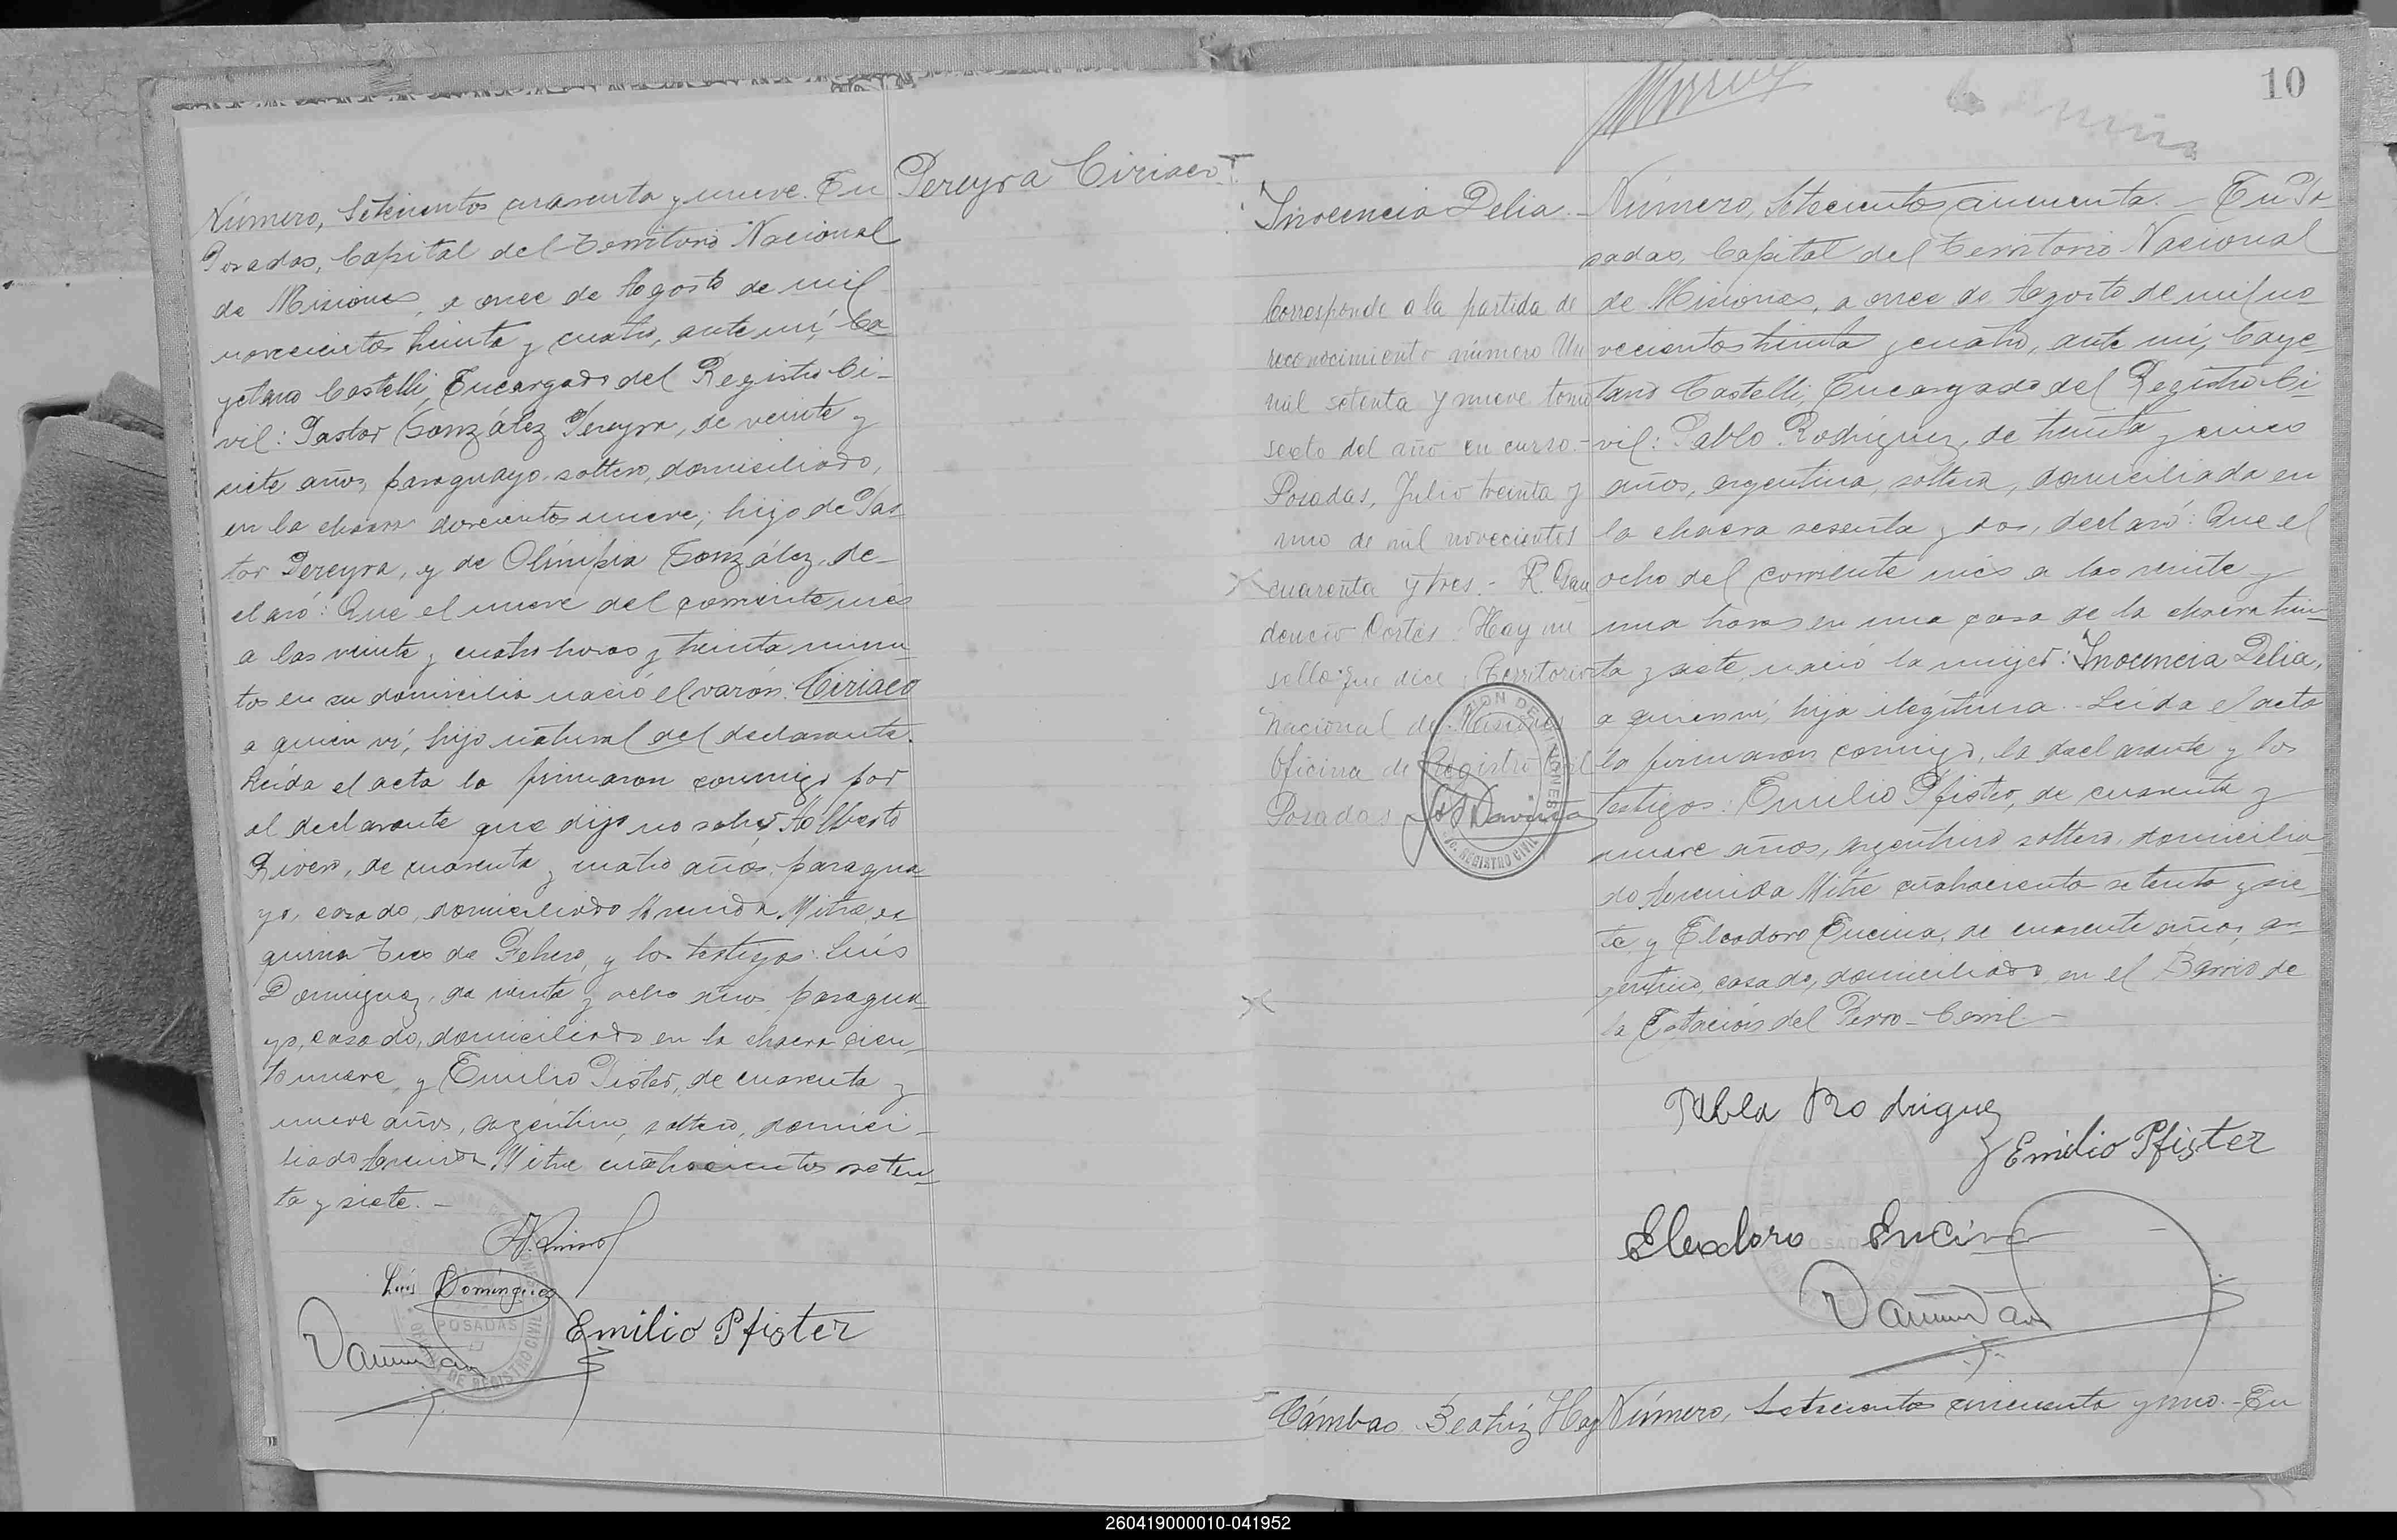 Número, Setecientos cuarenta y nueve. En
Posadas, Capital del Territorio Nacional
de Misiones, a once de Agosto de mil
novecientos treinta y cuatro, ante mí, Ca
yetano Castelli, Encargado del Registro Ci-
vil: Pastor González Pereyra, de veinte y
siete años, paraguayo, soltero, domiciliado,
en la chacra doscientos nueve, hijo de Pas
tor Pereyra, y de Olimpia González, de-
claró: Que el nueve del corriente mes
a las veinte y cuatro horas y treinta minu
tos en su domicilio nació el varón: Ciriaco
a quien ví, hijo natural del declarante.
Leída el acta la firmaron conmigo por
el declarante que dijo no saber, Alberto
Rivero, de cuarenta y cuatro años, paragua
yo, casado, domiciliado Avenida Mitre es
quina Tres de Febrero, y los testigos: Luís
Dominguez, de veinte y ocho años, paragua
yo, casado, domiciliado en la chacra cien
to nueve, y Emilio Pfister, de cuarenta y
nueve años, argentino, soltero, domici-
liado Avenida Mitre cuatrocientos seten
ta y siete. -
Luís Domínguez
POSADAS
Emilio Pfister
Pereyra Ciriaco
10
Inocencia Delia.
Corresponde a la partida de
reconocimiento número Un
mil setenta y nueve tomo
sexto del año en curso.-
Posadas, Julio treinta y
uno de mil novecientos
cuarenta y tres. - R. Gau
dencio Cortés. Hay un
sello que dice: Territorio
Nacional de Misiones
Oficina de Registro Civil
Posadas
REGISTRO CIVIL
Número, Setecientos cincuenta. - En Po
sadas, Capital del Territorio Nacional
de Misiones, a once de Agosto de mil no
vecientos treinta y cuatro, ante mí, Caye
tano Castelli, Encargado del Registro Ci-
vil: Pabla Rodríguez, de treinta y cinco
años, argentina, soltera, domiciliada en
la chacra sesenta y dos, declaró: Que el
ocho del corriente mes a las veinte y
una horas en una casa de la chacra trein
ta y siete, nació la mujer: Inocencia Delia,
a quien ví, hija ilegítima. - Leída el acta
la firmaron conmigo, la declarante y los
testigos: Emilio Pfister, de cuarenta y
nueve años, argentino soltero, domicilia
do Avenida Mitre cuatrocientos setenta y sie
te, y Eleodoro Encina, de cuarenta años, ar
gentino, casado, domiciliado en el Barrio de
la Estación del Ferro-Carril -
Pabla Rodriguez
Emilio Pfister
Eleodoro Encina
Cámbas Beatríz Hay
Número, Setecientos cincuenta y uno. - En
260419000010-041952